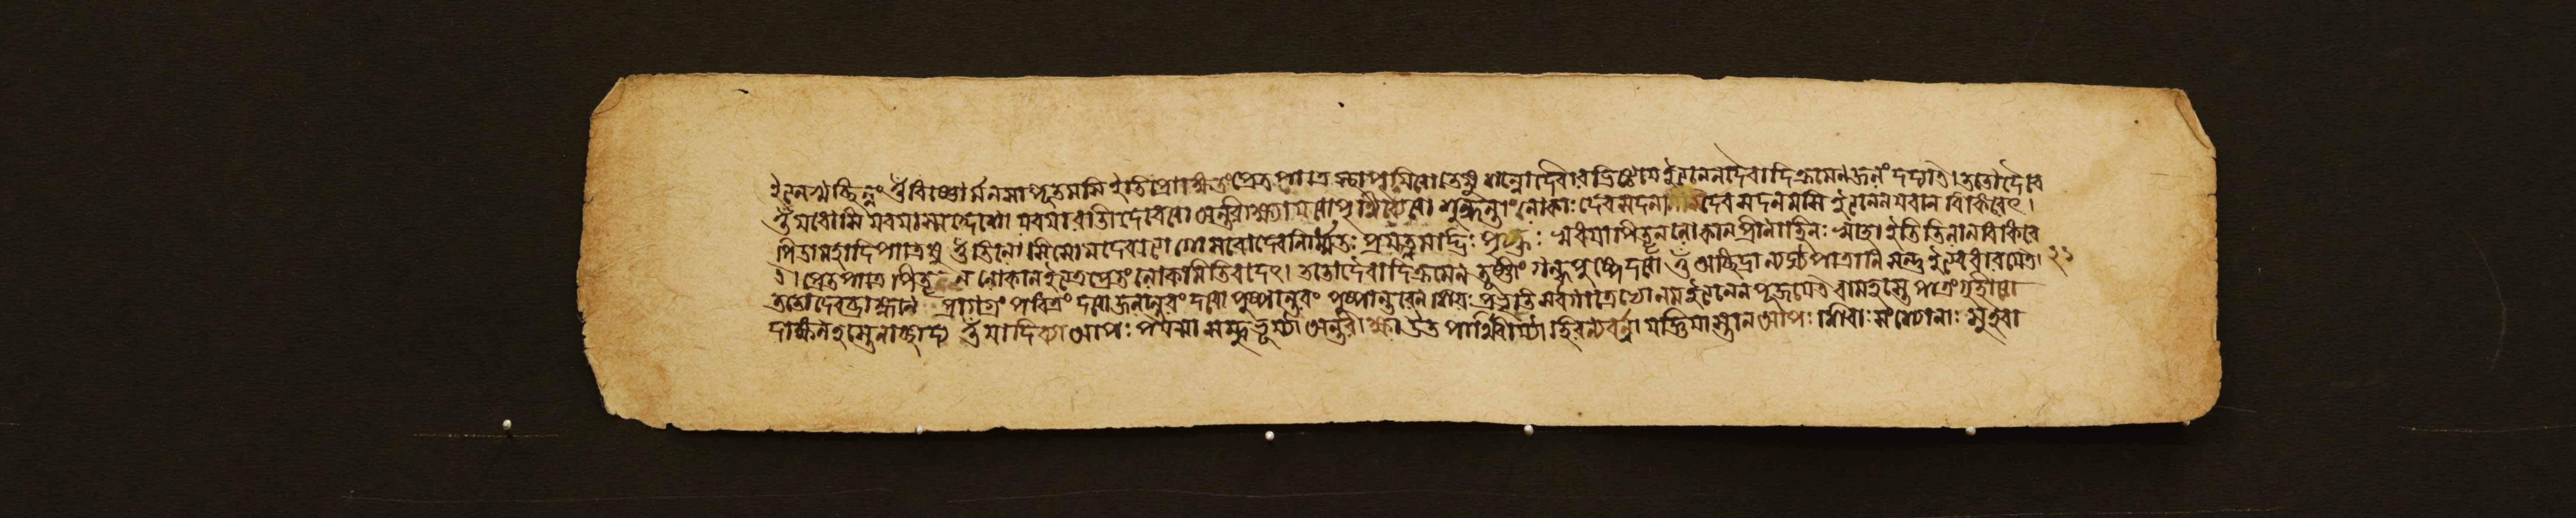 ইত্যনেনচ্ছিন্নং ওঁ বিষ্ণোর্মনসাপূতমসি ইতিপ্রোক্ষিতং প্রেতপাত্রে স্থাপয়িত্বা তেষু শন্নোদেবীরভিষ্টয় ইত্যনেন দেবাদিক্রমেন জলং দদ্যাৎ। ততো দৈবে
ওঁ যবোসি যবয়াস্মদ্দেষো যবয়ারাতী দিবেত্বা অন্তরীক্ষায়ত্বা পৃথিব্যৈত্বা শুন্ধন্তাং লোকাঃ পিতৃসদনাঃ পিতৃসদনমসি ইত্যনেন যবান্ বিকিরেৎ।
পিতামহাদিপাত্রেষু ওঁ তিলোসি সোমদেবত্যো গোসবো দেবনির্মিতঃ প্রত্নমদ্ভিঃ পৃক্তঃ স্বধয়া পিতৃন্ লোকান্ প্রীণাহি নঃ স্বাহা ইতি তিলান্ বিকিরে
ৎ। প্রেতপাত্রে পিতৃন্ লোকান্ ইত্যত্র প্রেতং লোকানিতি বদেৎ। ততো দেবাদিক্রমেন তূষ্ণীং গন্ধপুষ্পে দত্বা ওঁ অচ্ছিদ্রান্যর্ঘ্যপাত্রানি সন্তু ইত্যবধারয়েৎ। ২১
ততো দেবব্রাহ্মনে প্রাগগ্রং পবিত্রং দত্বা জলান্তরং দত্বা পুষ্পান্তরং পুষ্পান্তরেন শিরঃপ্রভৃতি সর্বগাত্রেভ্যো নম ইত্যনেন পূজয়েৎ বামহস্তে পাত্রং গৃহীত্বা
দক্ষিনহস্তেনাচ্ছাদ্য ওঁ যা দিব্যা আপঃ পয়সা সম্বভূবুর্যা অন্তরীক্ষা উত পার্থিবীর্যা হিরন্যবর্না যজ্ঞিয়াস্তান আপঃ শিবাঃ সংশ্যোনাঃ সুহবা